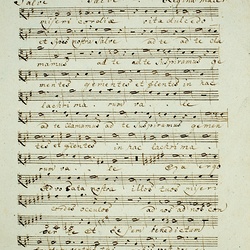 Salve Salve Regina mater
misericordiae vita dulcedo
et spes nostra Salve ad te ad te cla
mamus ad te ad te Suspiramus ge
mentes gementes et flentes in hac
lachrima rum val le
ad te clamamus ad te Suspiramus gemen
tes et flentes in hac lachrima
rum val le Eia ergo
Advocata nostra illos tuos miseri
cordes oculos ad nos ad nos con
et Jesum benedictum